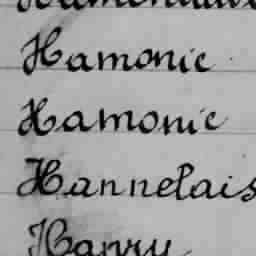 Hamonic
Hamonic
Hannelais
Hanry